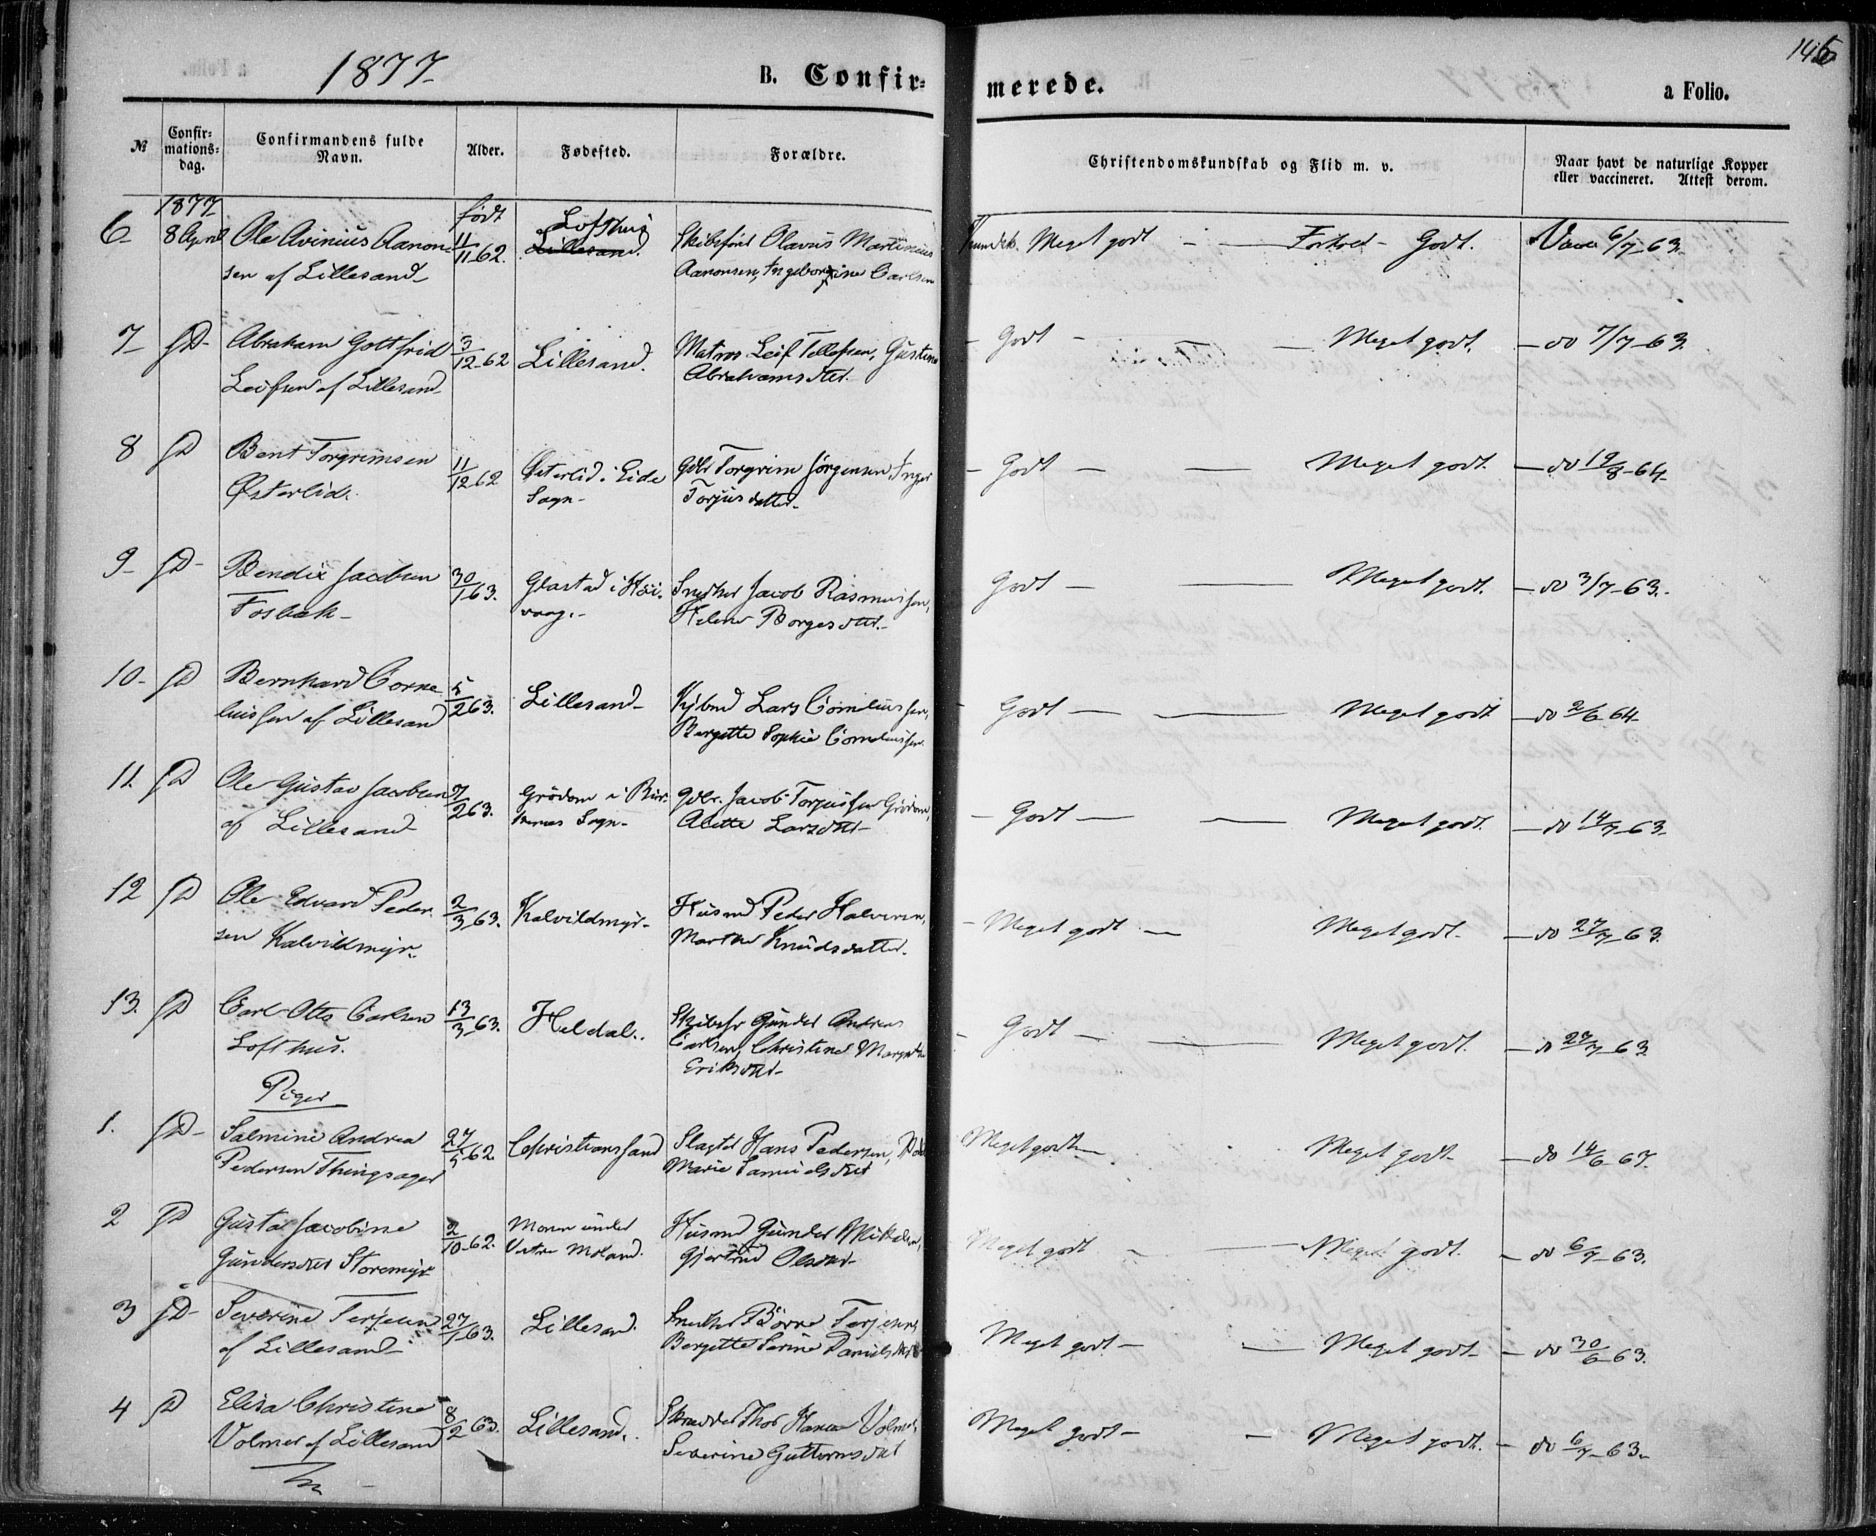 1877
B. Confirmerede.
145
a Folio.
№
Confirmations-dag.
Confirmandens fulde Navn.
Alder.
Fødested.
Forældre.
Christendomskundskab og Flid m. v.
Naar havt de naturlige Kopper eller vaccineret. Attest derom.
1877
født
6 8 April Ole Avinius Aanon- 11/11 62. Lofthus Skibsfører Olavus Martinius Kundsk. Meget godt — Forhold - Godt. Vacc 6/7-63.
sen af Lillesand Lillesand. Aanonsen, Ingeborgine Carlsen
7 D Abraham Gottfrid 3/12-62 Lillesand. Matros Leif Tellefsen, Gustine - Godt - Meget godt. - do 7/7-63.
Leifsen af Lillesand Abrahamsdtr.
8 D Bent Torgrimsen 11/12 62 Østerlid i Eide Gdbr Torgrim Jørgensen, Inger - Godt - Meget godt. - do 19/8-64
Østerlid. Sogn Torjusdatter
9 D Bendix Jacobsen 30/1 63. Glastad i Høi- Snedker Jacob Rasmussen, Godt - Meget godt. - do 3/7-63.
Fosbæk vaag. Helene Borgesdtr.
10 D Bernhard Corne- 5/2 63. Lillesand Kjbmd Lars Corneliussen, Godt - Meget godt - do 2/6 64
liussen af Lillesand Bergitte Sophie Corneliussen.
11. D Ole Gustav Jacobsen 7/2 63. Grødom i Bir- Gdbr. Jacob Torjussen Grødom, - Godt - Meget godt. - do 14/7-63.
af Lillesand kenes Sogn Alette Larsdtr
12 D Ole Edvard Peder- 2/3 63. Kalvildmyr Husmd Peder Halvorsen, - Meget godt - Meget godt. - do 27/7-63.
sen Kalvildmyr. Marthe Knudsdatter.
13. D Carl Otto Carlsen 13/3 63. Heldal. Skibsfr Gunder Andreas - Godt - Meget godt. - do 27/7-63
Lofthus. Carlsen, Christine
Eriksdtr
Piger
1. D Salmine Andrea 27/5 62 Christianssand Slagter Hans Pedersen, Meget godt Meget godt - do 14/6-67.
Pedersen Thingsager Marie Samuelsdtr
2 D Gusta Jacobine 2/10-62. Moren under Husmd Gunder Mikkelsen, Meget godt - Meget godt. - do 6/7-63.
Gundersdtr Storemyr Vestre Moland. Gjertrud Olsdtr
3 D Severine Terjesen 27/1 63. Lillesand. Snedker Børre Terjesen, Meget godt - Meget godt - do 30/6-63.
af Lillesand Bergitte Serine Danielsdtr
4 D Elisa Christine 8/2 63. Lillesand. Skrædder Thor Hansen Volmer, Meget godt - Meget godt. - do 6/7-63.
Volmer af Lillesand Severine Guttormsdtr